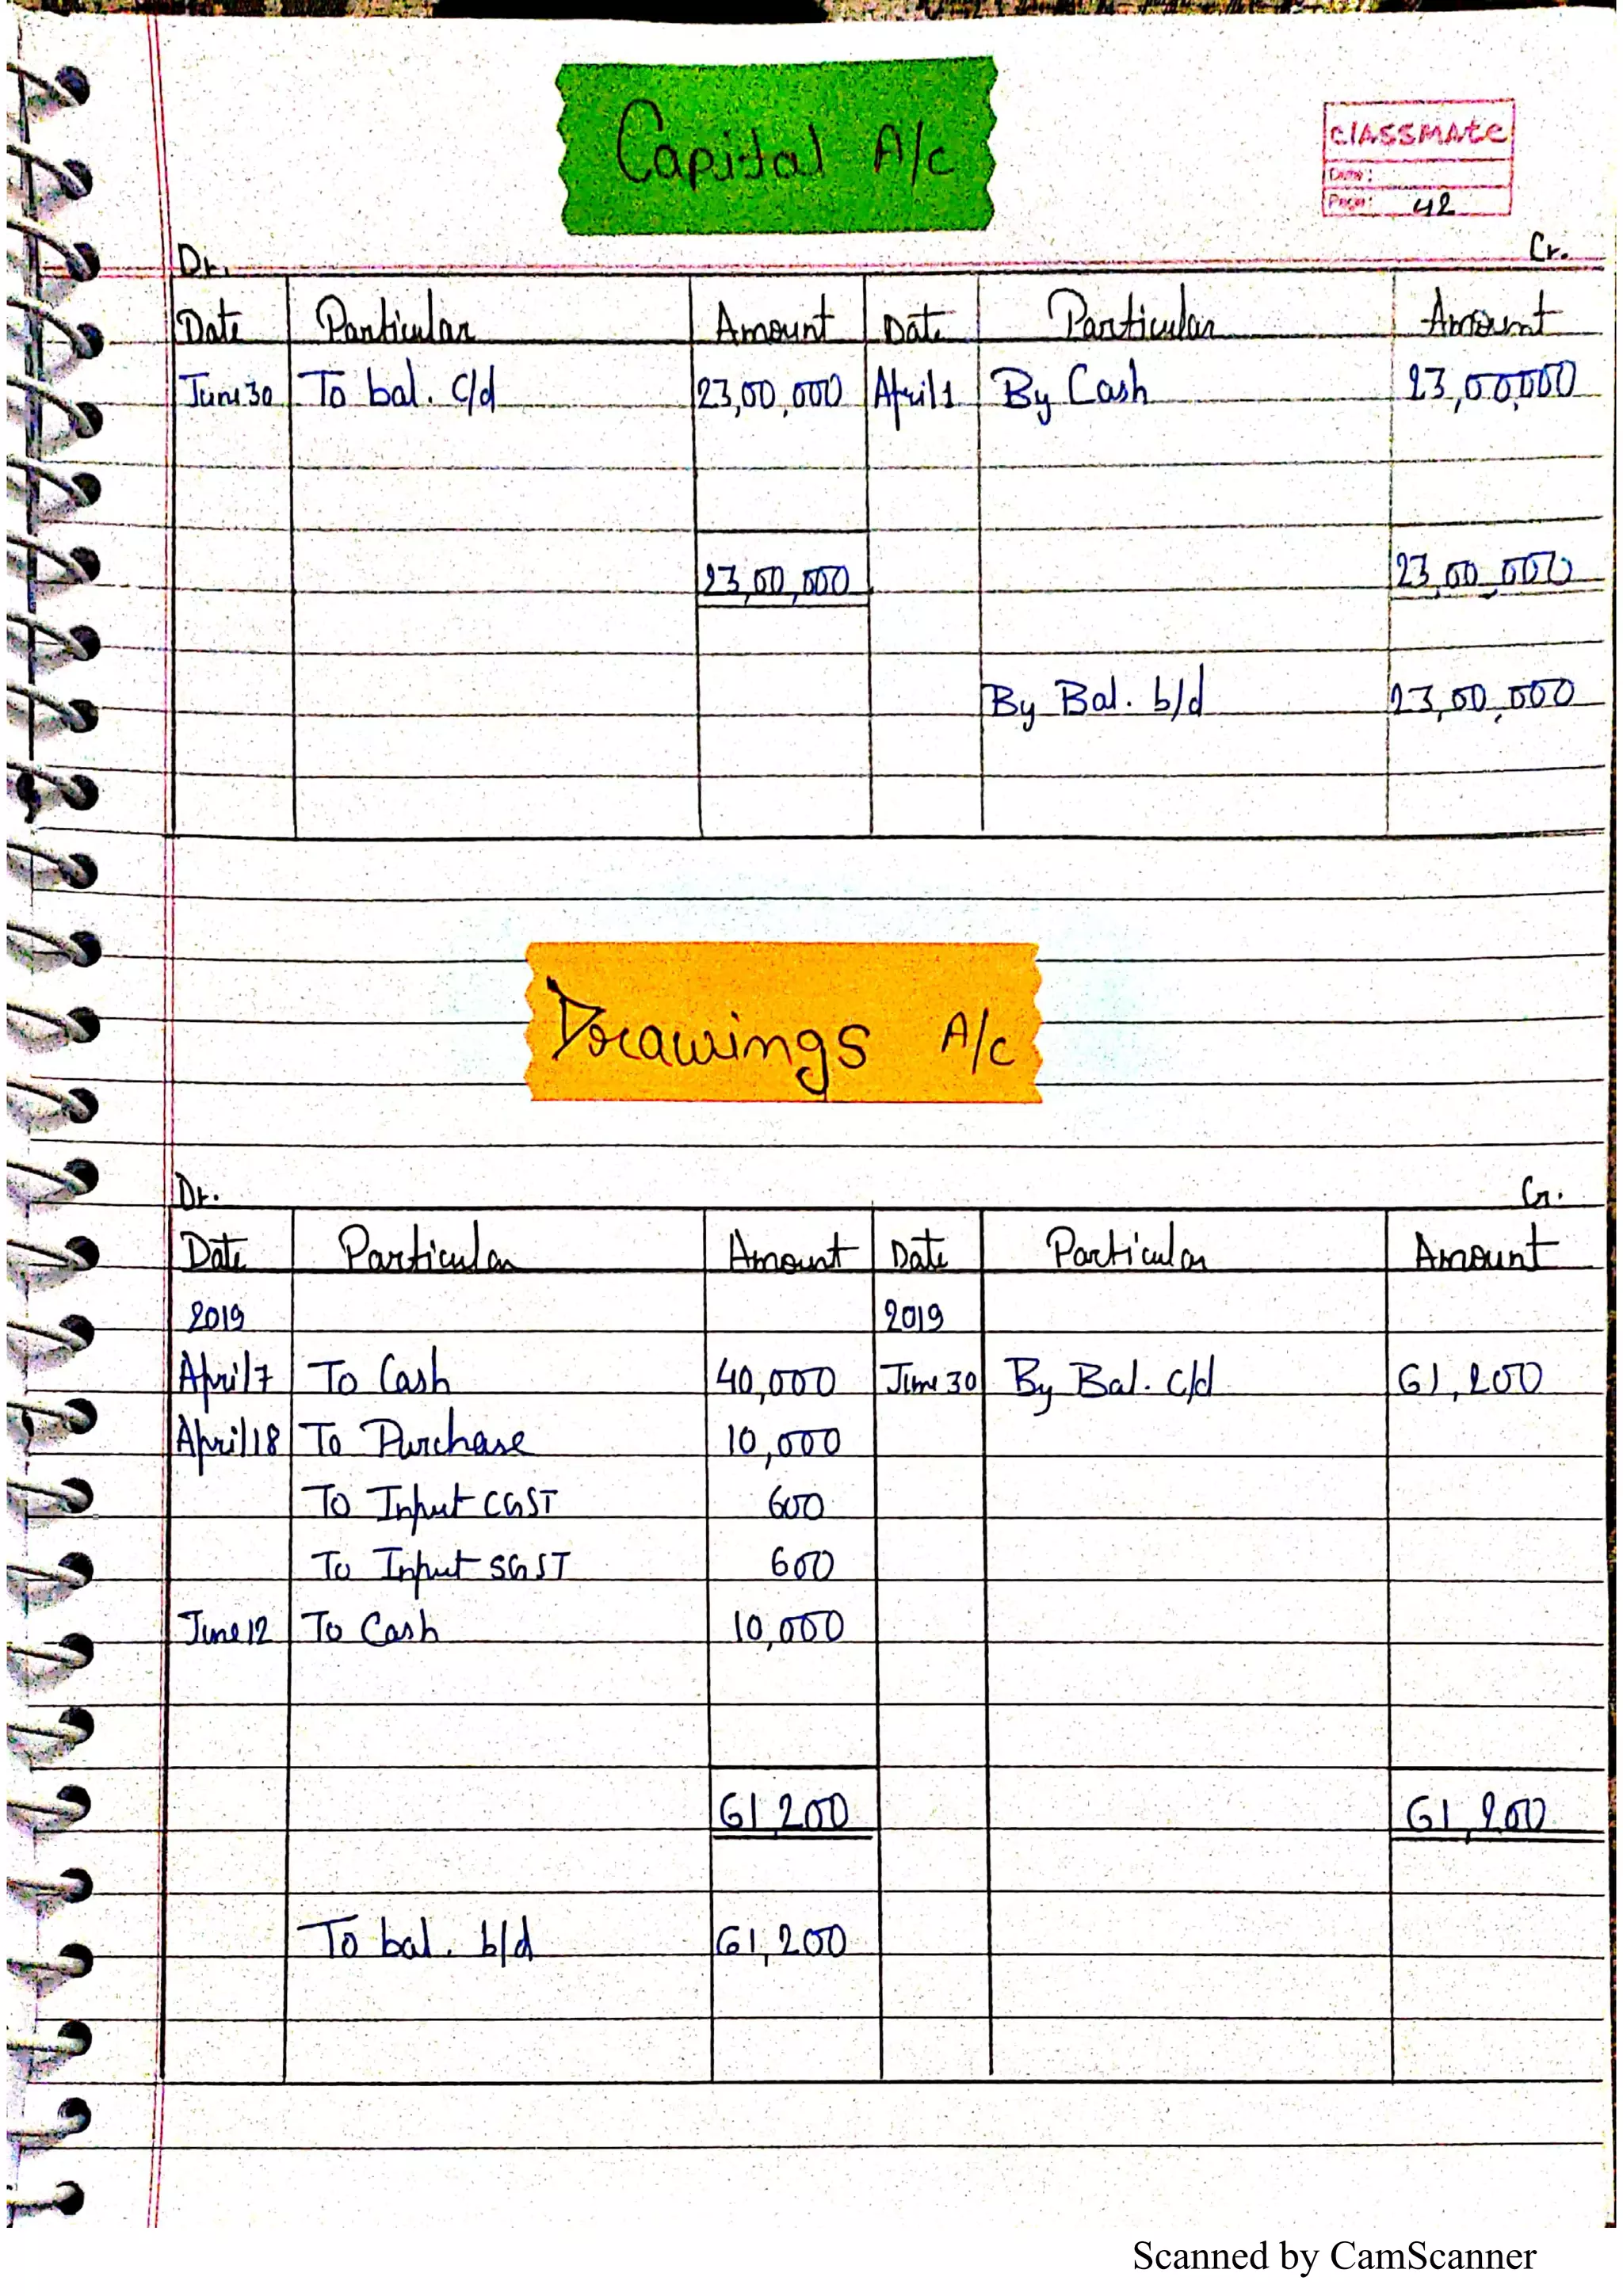 Capital A/c
CLASSMATE
Date:
Page: 42
Dr. Cr.
Date Particular Amount Date Particular Amount
June 30 To bal. c/d 23,00,000 April 1 By Cash 23,00,000
23,00,000 23,00,000
By Bal. b/d 23,00,000
Drawings A/c
Dr. Cr.
Date Particular Amount Date Particular Amount
2019 2019
April 7 To Cash 40,000 June 30 By Bal. c/d 61,200
April 18 To Purchase 10,000
To Input CGST 600
To Input SGST 600
June 12 To Cash 10,000
61,200 61,200
To bal. b/d 61,200
Scanned by CamScanner